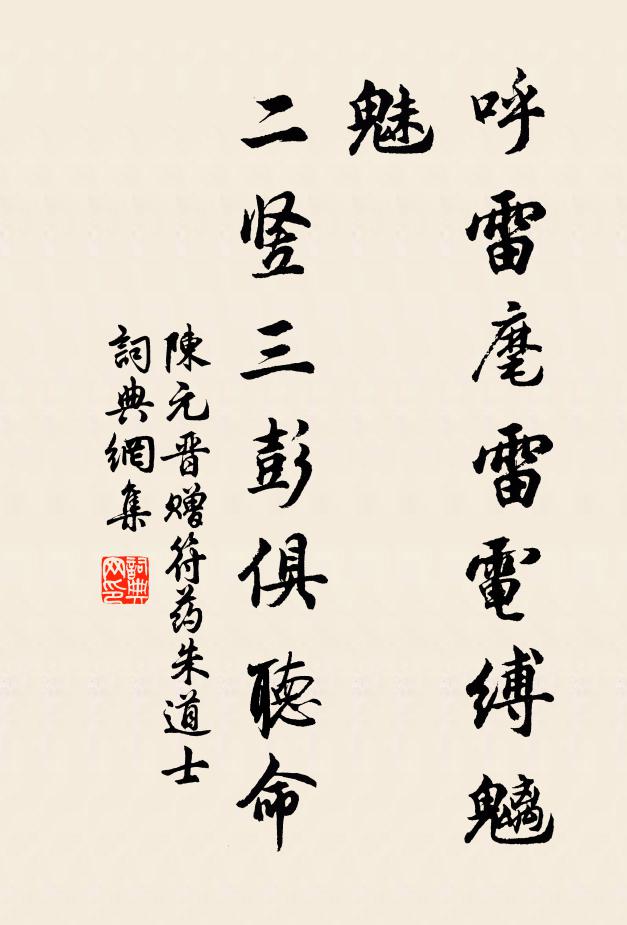 呼雷麾雷電縛魑
魅
二竖三彭俱聽命
陳元晋赠符药朱道士
詞典網集
詞典網印